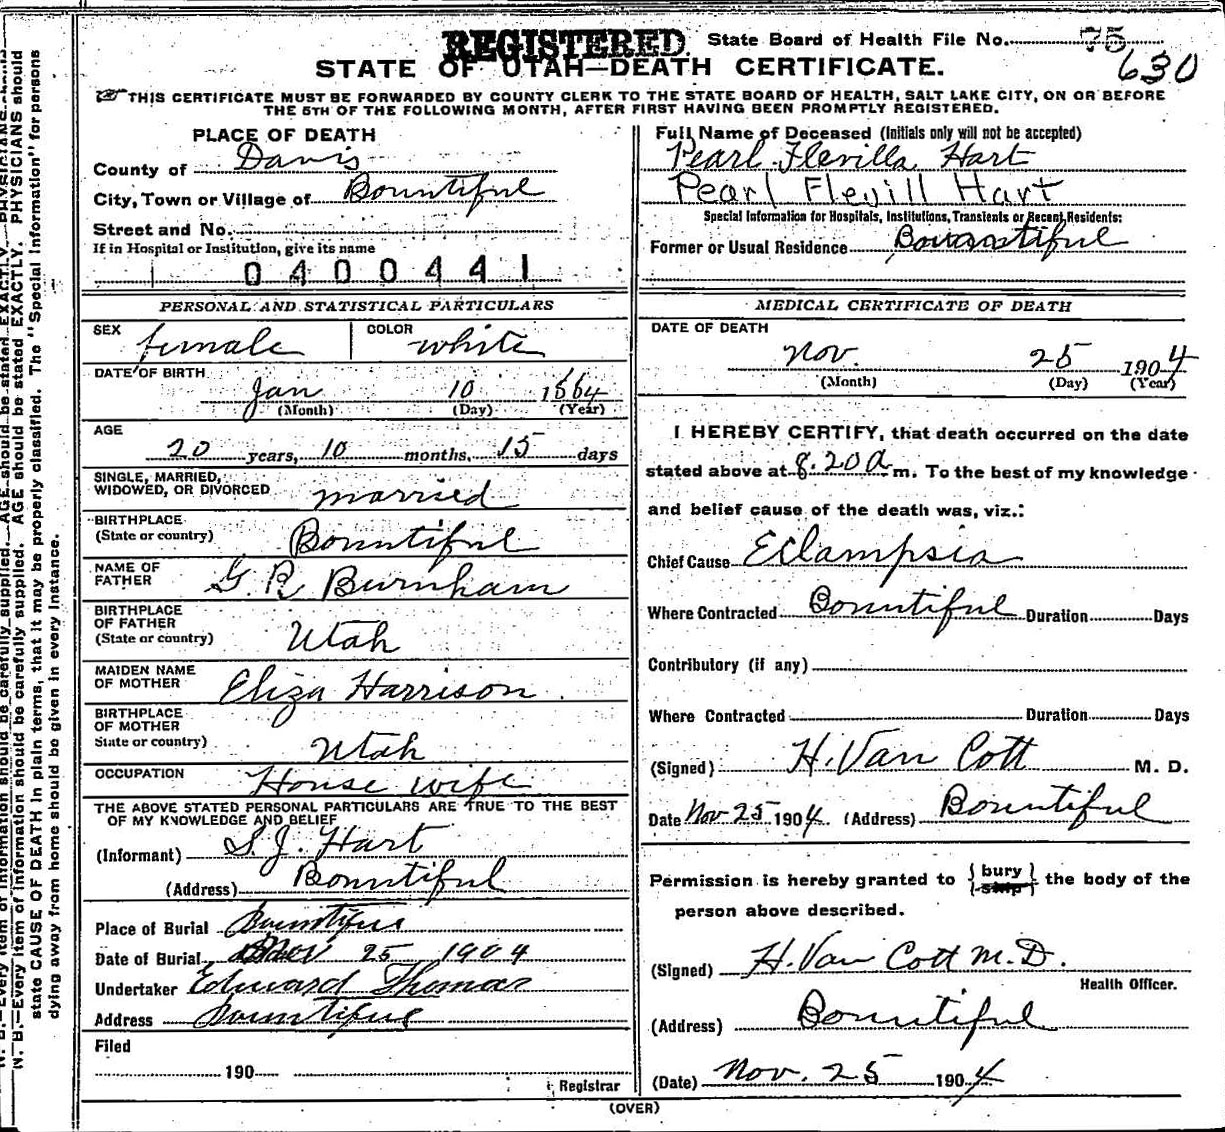 REGISTERED. State Board of Health File No. 75
630
STATE OF UTAH—DEATH CERTIFICATE.
THIS CERTIFICATE MUST BE FORWARDED BY COUNTY CLERK TO THE STATE BOARD OF HEALTH, SALT LAKE CITY, ON OR BEFORE
THE 5TH OF THE FOLLOWING MONTH, AFTER FIRST HAVING BEEN PROMPTLY REGISTERED.
PLACE OF DEATH
County of Davis
City, Town or Village of Bountiful
Street and No.
If in Hospital or Institution, give its name
0400441
PERSONAL AND STATISTICAL PARTICULARS
SEX female COLOR white
DATE OF BIRTH
Jan 10 1884
(Month) (Day) (Year)
AGE
20 years, 10 months, 15 days
SINGLE, MARRIED,
WIDOWED, OR DIVORCED married
BIRTHPLACE
(State or country) Bountiful
NAME OF
FATHER G. R. Burnham
BIRTHPLACE
OF FATHER
(State or country) Utah
MAIDEN NAME
OF MOTHER Eliza Harrison.
BIRTHPLACE
OF MOTHER
State or country) Utah
OCCUPATION House wife
THE ABOVE STATED PERSONAL PARTICULARS ARE TRUE TO THE BEST
OF MY KNOWLEDGE AND BELIEF
(Informant) S. J. Hart
(Address) Bountiful
Place of Burial Bountiful
Date of Burial Nov 25 1904
Undertaker Edward Thomas
Address Bountiful
Filed
190
Registrar
Full Name of Deceased (Initials only will not be accepted)
Pearl Flevilla Hart
Pearl Flevill Hart
Special Information for Hospitals, Institutions, Transients or Recent Residents:
Former or Usual Residence Bountiful
MEDICAL CERTIFICATE OF DEATH
DATE OF DEATH
Nov. 25 1904
(Month) (Day) (Year)
I HEREBY CERTIFY, that death occurred on the date
stated above at 8.20 a m. To the best of my knowledge
and belief cause of the death was, viz.:
Chief Cause Eclampsia
Where Contracted Bountiful Duration Days
Contributory (if any)
Where Contracted Duration Days
(Signed) H. Van Cott M. D.
Date Nov 25 1904. (Address) Bountiful
Permission is hereby granted to { bury / ship } the body of the
person above described.
(Signed) H. Van Cott M. D.
Health Officer.
(Address) Bountiful
(Date) Nov. 25 1904
(OVER)
N. B.—Every item of information should be carefully supplied. AGE should be stated EXACTLY. PHYSICIANS should
state CAUSE OF DEATH in plain terms, that it may be properly classified. The "Special Information" for persons
dying away from home should be given in every instance.